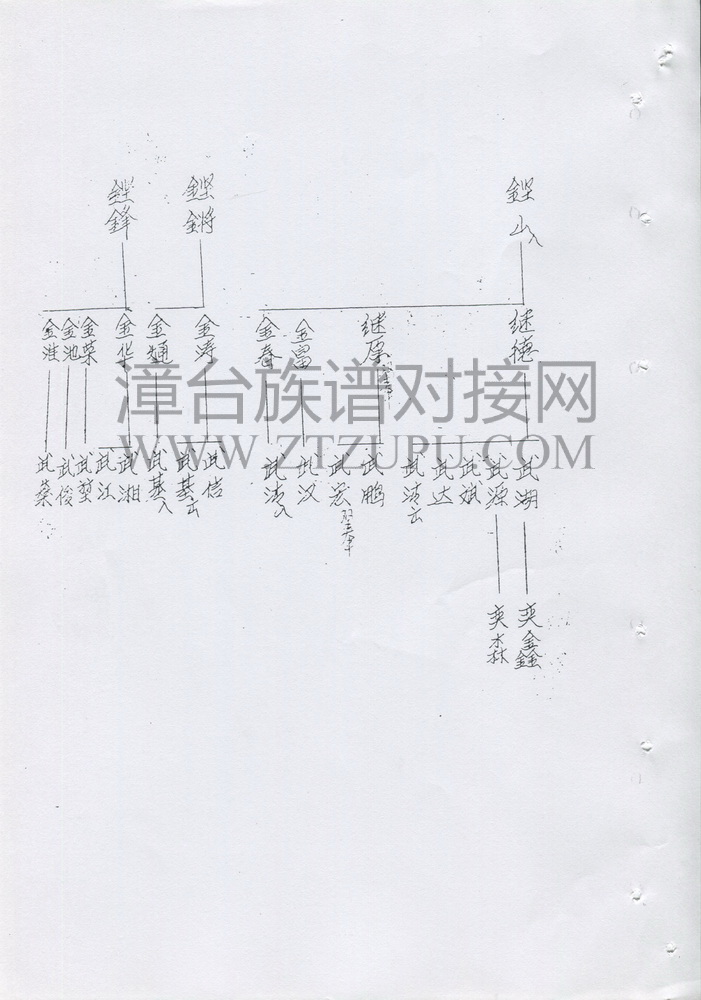 鏗山入
鏗鏘
鏗鋒
继德
继厚
金富
金春
金涛
金通
金华
金荣
金池
金淮
武湖
武源
武斌
武达
武清出
武鹏
武宏
武汉
武清入
武信
武基出
武基入
武湘
武江
武堃
武俊
武燊
奕鑫
奕森
漳台族谱对接网
WWW.ZTZUPU.COM